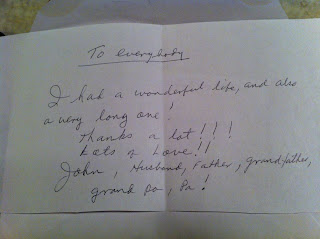 To everybody
I had a wonderful life, and also
a very long one!
Thanks a lot!!!
Lots of Love!!
John, Husband, Father, grandfather,
grand pa, Pa!